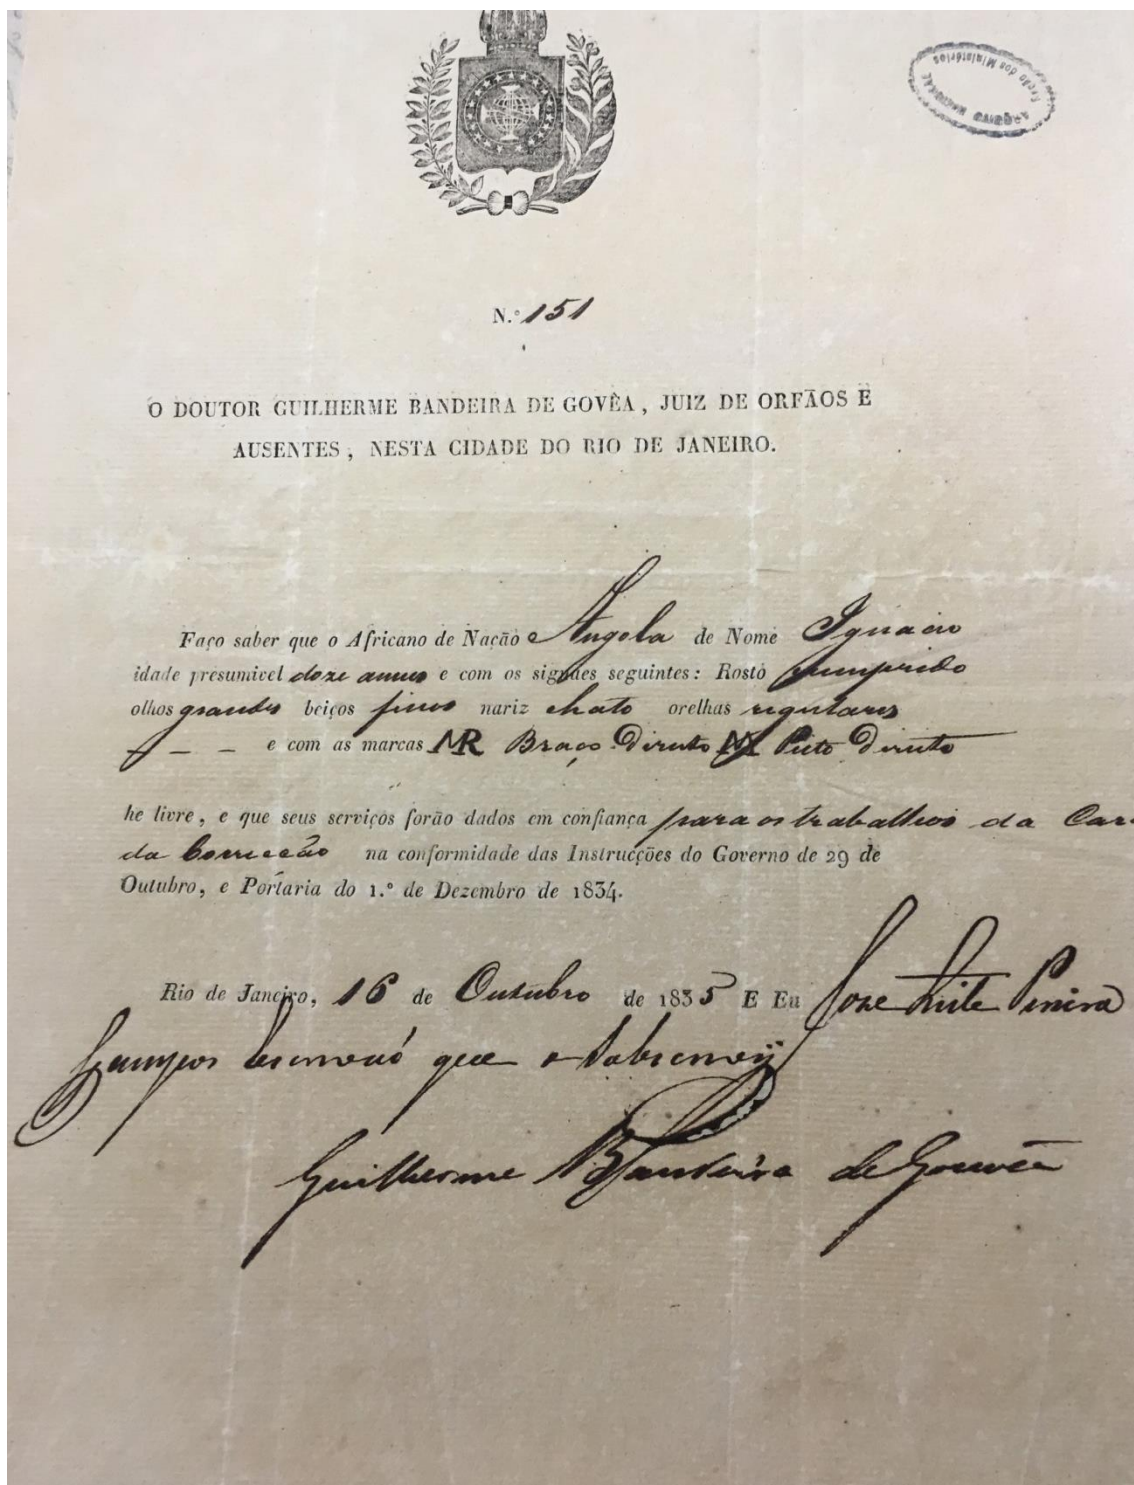 ARQUIVO NACIONAL
Seção dos Ministérios
N.º 151
O DOUTOR GUILHERME BANDEIRA DE GOVÊA, JUIZ DE ORFÃOS E
AUSENTES, NESTA CIDADE DO RIO DE JANEIRO.
Faço saber que o Africano de Nação Angola de Nome Ignacio
idade presumivel doze annos e com os signáes seguintes: Rosto cumprido
olhos grandes beiços finos nariz chato orelhas regulares
e com as marcas MR Braço Direito Peito Direito
he livre, e que seus serviços forão dados em confiança para os trabalhos da Caz
da Correcção na conformidade das Instrucções do Governo de 29 de
Outubro, e Portaria do 1.º de Dezembro de 1834.
Rio de Janeiro, 16 de Outubro de 1835 E Eu Joze Leite Pereira
Campos escrevi que o sobscrevy
Guilherme Bandeira de Gouvêa